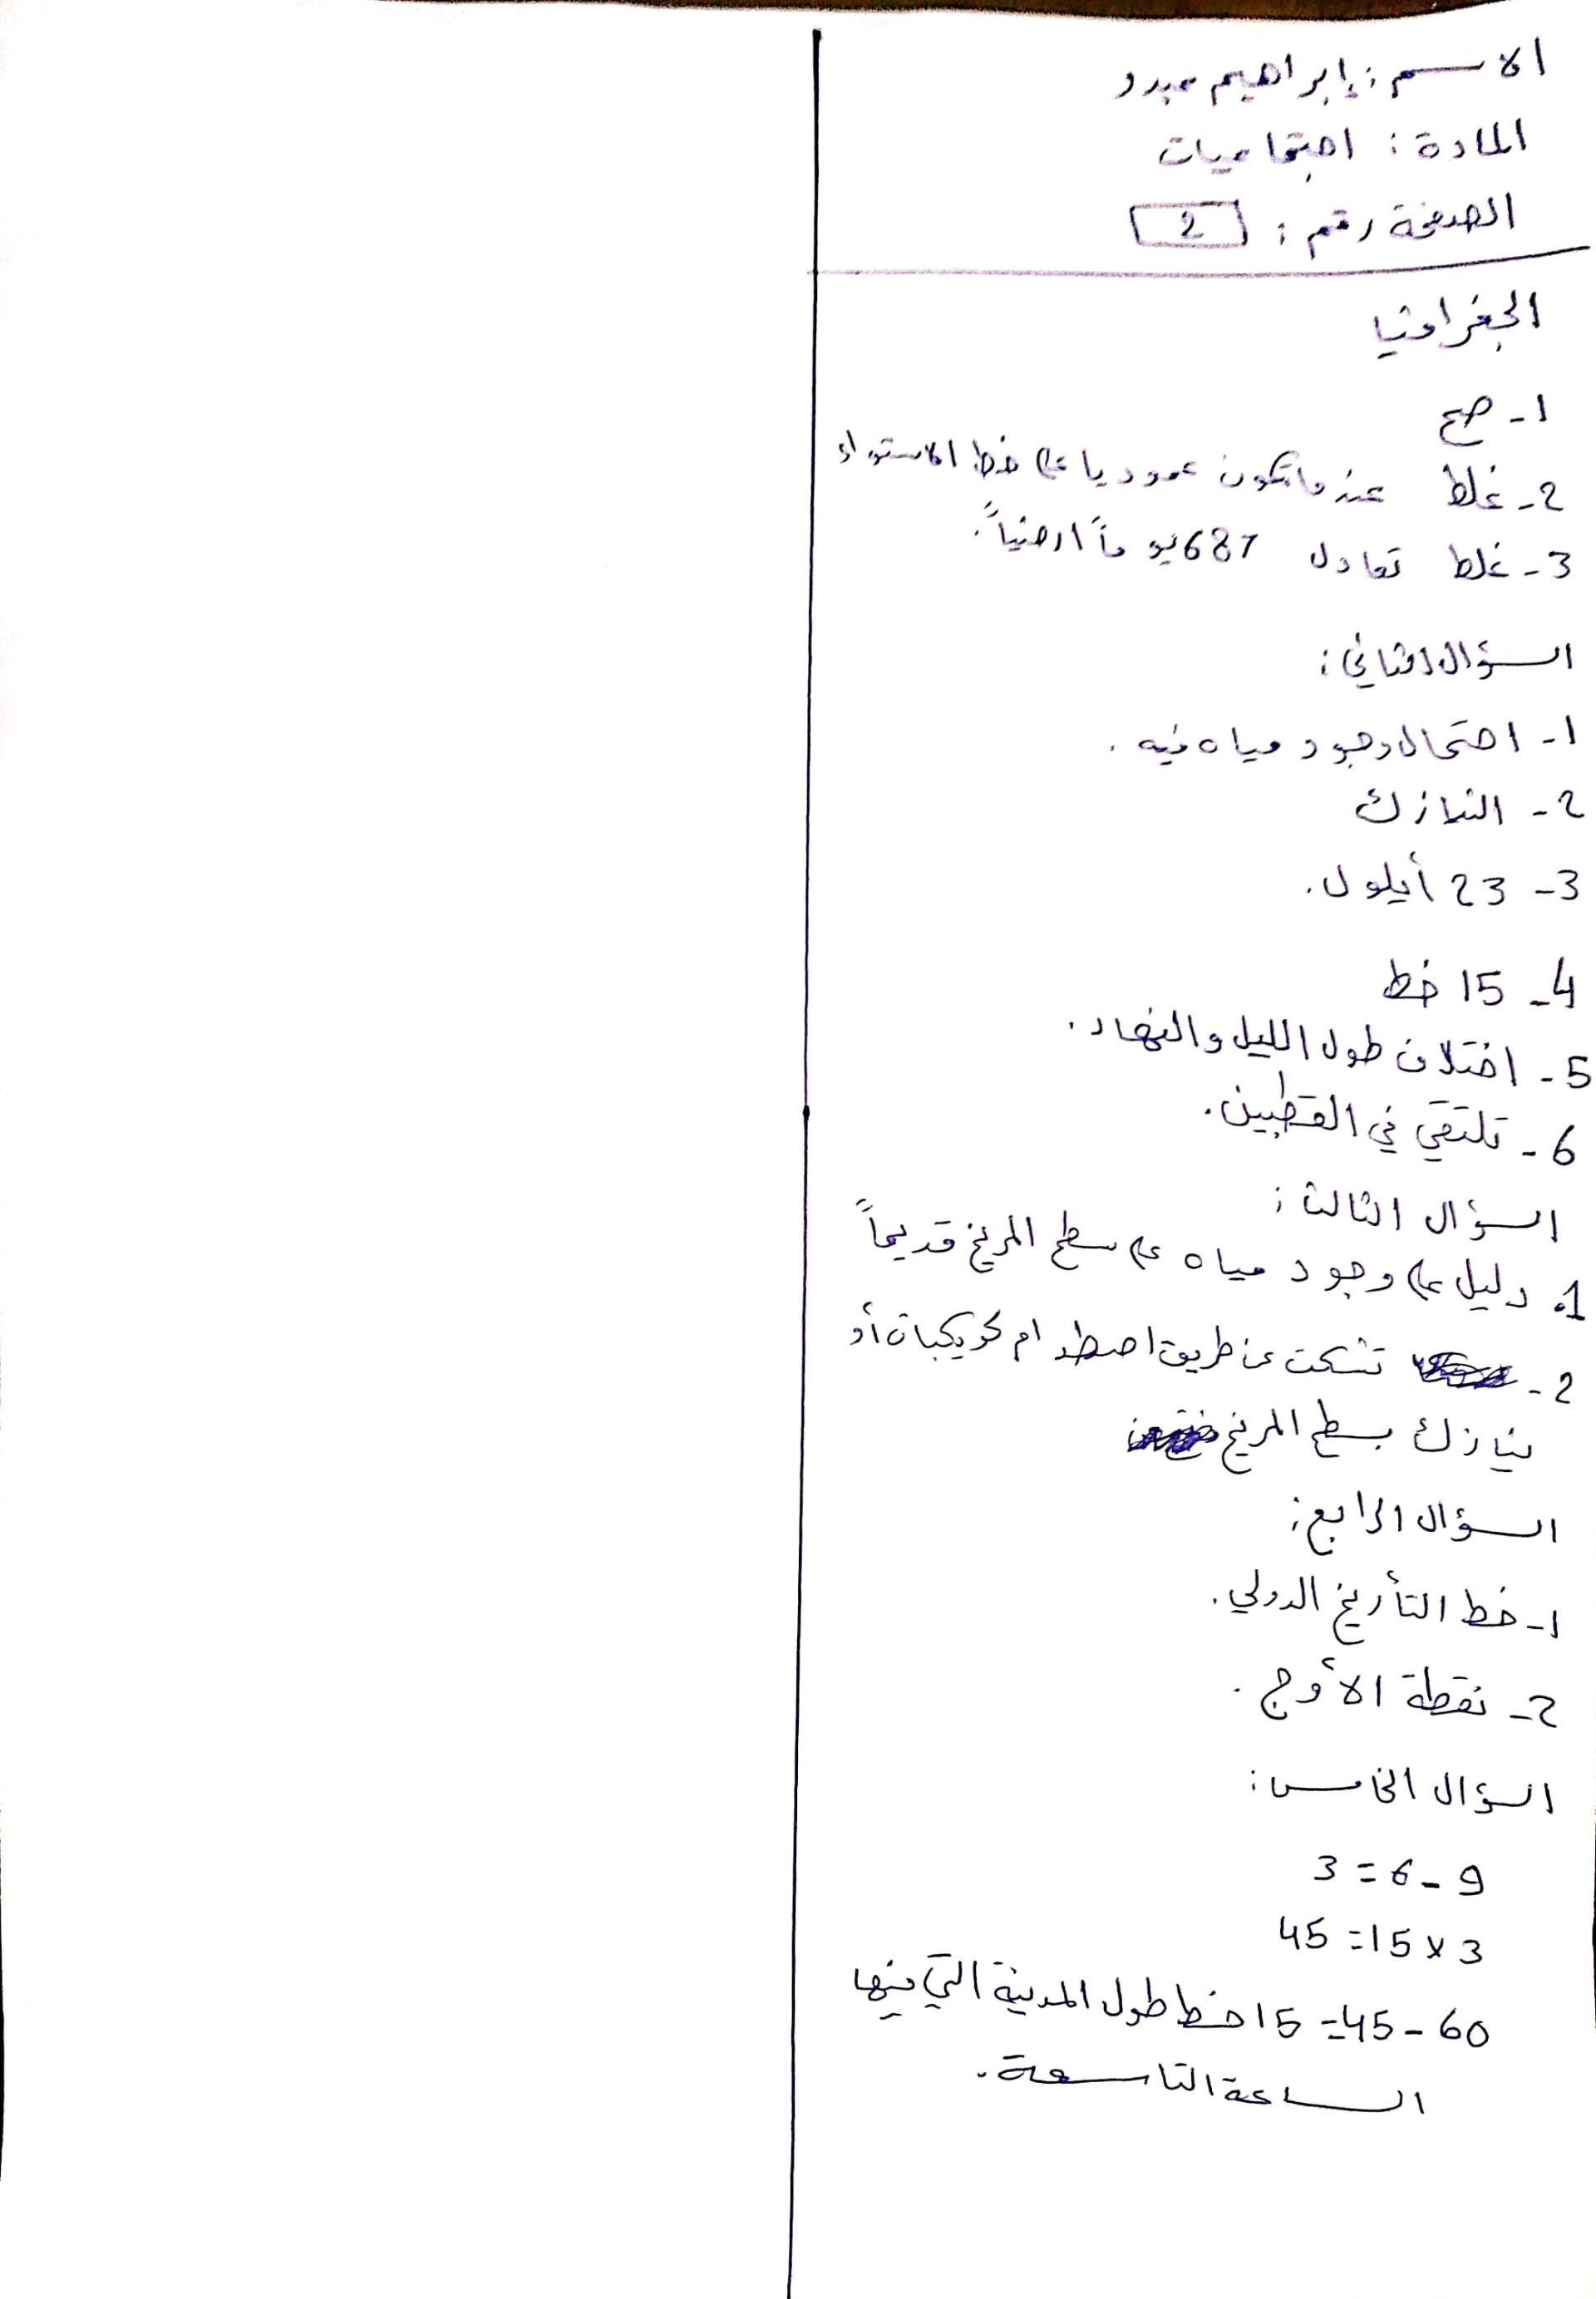 الاسم : إبراهيم عبدو
المادة : اجتماعيات
الصفحة رقم : 2
الجغرافيا
1- صح
2- غلط عندما تكون عموديا على خط الاستواء
3- غلط تعادل 687 يوماً ارضياً.
السؤال الثاني :
1- احتمال وجود مياه فيه .
2- النيازك
3- 23 أيلول.
4- 15 خط
5- اختلاف طول الليل والنهار.
6- تلتقي في القطبين.
السؤال الثالث :
1. دليل على وجود مياه على سطح المريخ قديماً
2- تشكلت عن طريق اصطدام كويكبات أو
نيازك بسطح المريخ
السؤال الرابع :
1- خط التأريخ الدولي.
2- نقطة الأوج .
السؤال الخامس :
9 - 6 = 3
3 × 15 = 45
60 - 45 = 15 خط طول المدينة التي فيها
الساعة التاسعة.